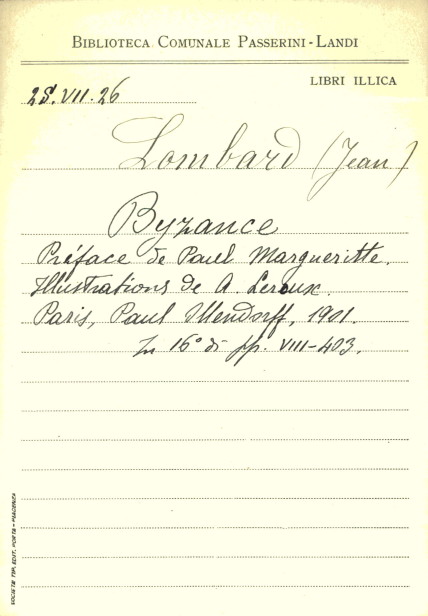 BIBLIOTECA COMUNALE PASSERINI-LANDI
LIBRI ILLICA
28.VII.26
Lombard (Jean)
Byzance
Préface de Paul Margueritte.
Illustrations de A. Leroux.
Paris, Paul Ollendorff, 1901.
In 16° di pp. VIII-403.
SOCIETÀ TIP. EDIT. PORTA-PIACENZA